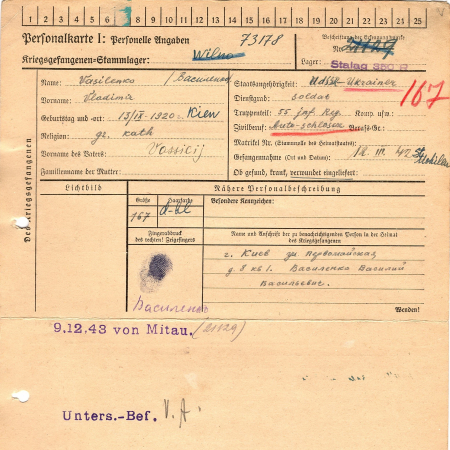 1 2 3 4 5 6 7 8 9 10 11 12 13 14 15 16 17 18 19 20 21 22 23 24 25
Personalkarte I: Personelle Angaben
73178
Beschriftung der Erkennungsmarke
Kriegsgefangenen-Stammlager: Wilna
Lager: Stalag 350 R
Des Kriegsgefangenen
Name: Vasilenko /Василенко
Vorname: Vladimir
Geburtstag und -ort: 13/IX-1920 Kien
Religion: gr. kath
Vorname des Vaters: Vassilij
Familienname der Mutter:
Staatsangehörigkeit: UdSSR Ukrainer
Dienstgrad: Soldat
Truppenteil: 55 Inf. Reg. Komp. usw.:
Zivilberuf: Auto-schlosser Berufs-Gr.:
Matrikel Nr. (Stammrolle des Heimatstaates):
Gefangennahme (Ort und Datum):
Ob gesund, krank, verwundet eingeliefert:
167
Lichtbild
Nähere Personalbeschreibung
Größe
167
Haarfarbe
d-bl
Besondere Kennzeichen:
Fingerabdruck
des rechten! Zeigefingers
Василенко
Name und Anschrift der zu benachrichtigenden Person in der Heimat
des Kriegsgefangenen
г. Киев ул Первомайская
д. 8 кв 1. Василенко Василий
Васильевич.
Wenden!
9.12.43 von Mitau. (21129)
Unters.-Bef. V. A.